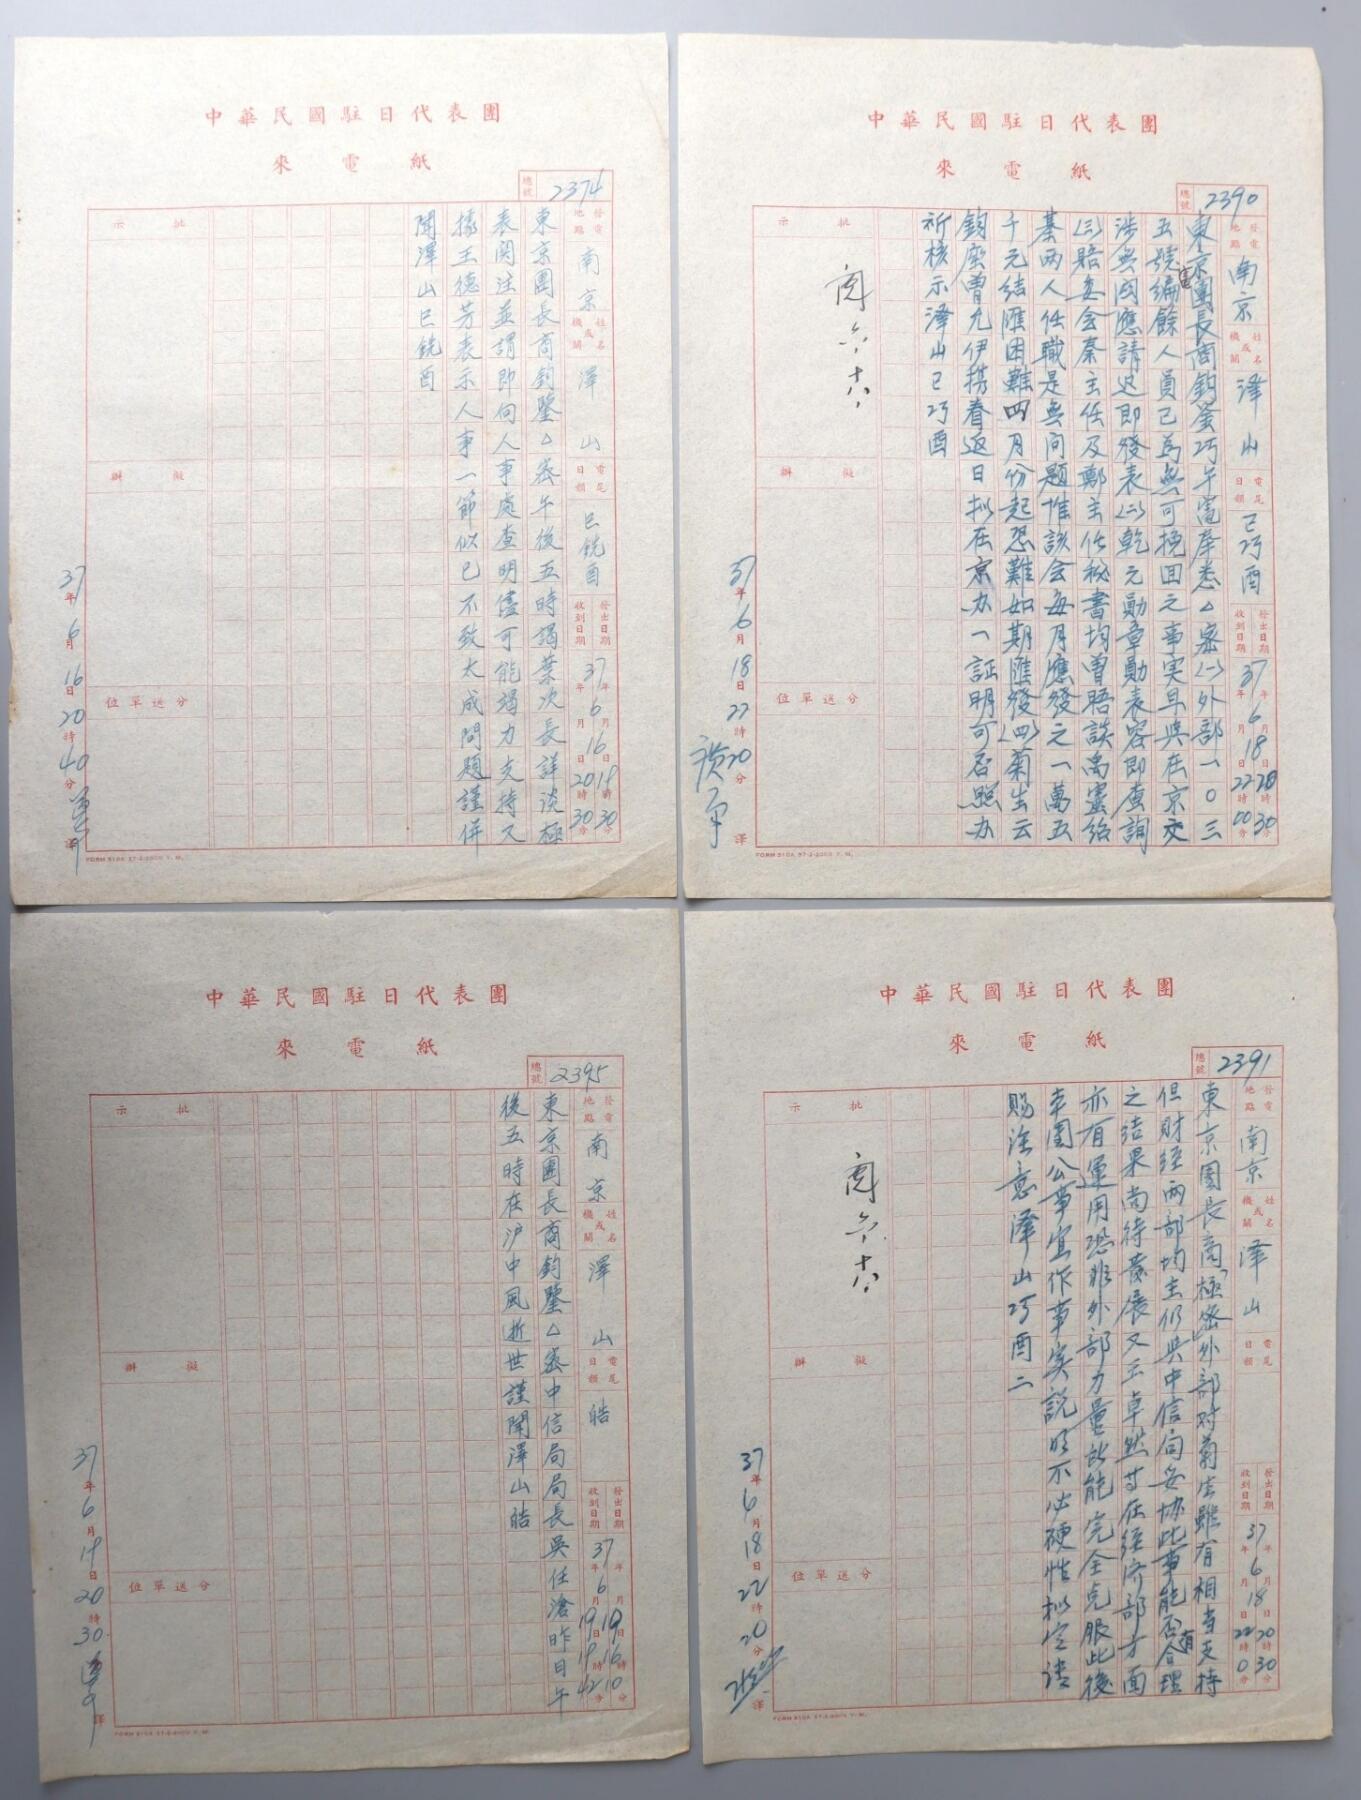 中華民國駐日代表團
來電紙
總號 2374
發電地點 南京
姓名或機關 澤山
電尾日韻 巳銑酉
發出日期 37年6月16日19時30分
收到日期 20時30分
東京團長商鈞鑒△密午後五時謁葉次長詳談極
表関注並謂即向人事處查明儘可能竭力支持又
據王德芳表示人事一節似已不致太成問題謹併
聞澤山巳銑酉
批示
擬辦
分送單位
37年6月16日20時40分 譯
FORM 510A 37-2-2000 Y.M.
中華民國駐日代表團
來電紙
總號 2390
發電地點 南京
姓名或機關 泽山
電尾日韻 巳巧酉
發出日期 37年6月18日20時30分
收到日期 22時00分
東京團長商鈞鉴巧午電奉悉△密(一)外部一〇三
五號電編餘人員已為無可挽回之事実早與在京交
涉無関應請迅即發表(二)乾元勛章勛表容即查詢
(三)賠委会秦主任及鄭主任秘書均曾晤談禹靈給
基两人任職是無问题惟該会每月應發之一萬五
千元结匯困難四月份起恐難如期匯發(四)菊生云
鈞座曾允伊携眷返日拟在京办一証明可否照办
祈核示泽山巳巧酉
批示
閱 六、十八、
擬辦
分送單位
37年6月18日22時20分 譯
FORM 510A 37-2-2000 Y.M.
中華民國駐日代表團
來電紙
總號 2395
發電地點 南京
姓名或機關 澤山
電尾日韻 皓
發出日期 37年6月19日16時10分
收到日期 19日19時42分
東京團長商鈞鑒△密中信局局長吳任滄昨日午
後五時在沪中風逝世謹聞澤山皓
批示
擬辦
分送單位
37年6月19日20時30分 譯
FORM 510A 37-2-2000 Y.M.
中華民國駐日代表團
來電紙
總號 2391
發電地點 南京
姓名或機關 泽山
電尾日韻
發出日期 37年6月18日20時30分
收到日期 22時0分
東京团長商「極密」外部对菊生雖有相當支持
但财经两部均主仍與中信局妥协此事能否有合理
之结果尚待發展又王卓然等在经济部方面
亦有運用恐非外部力量所能完全克服此後
本團公事宜作事实説明不必硬性拟定请
賜注意泽山巧酉二
批示
閱 六、十八、
擬辦
分送單位
37年6月18日22時20分 譯
FORM 510A 37-2-2000 Y.M.